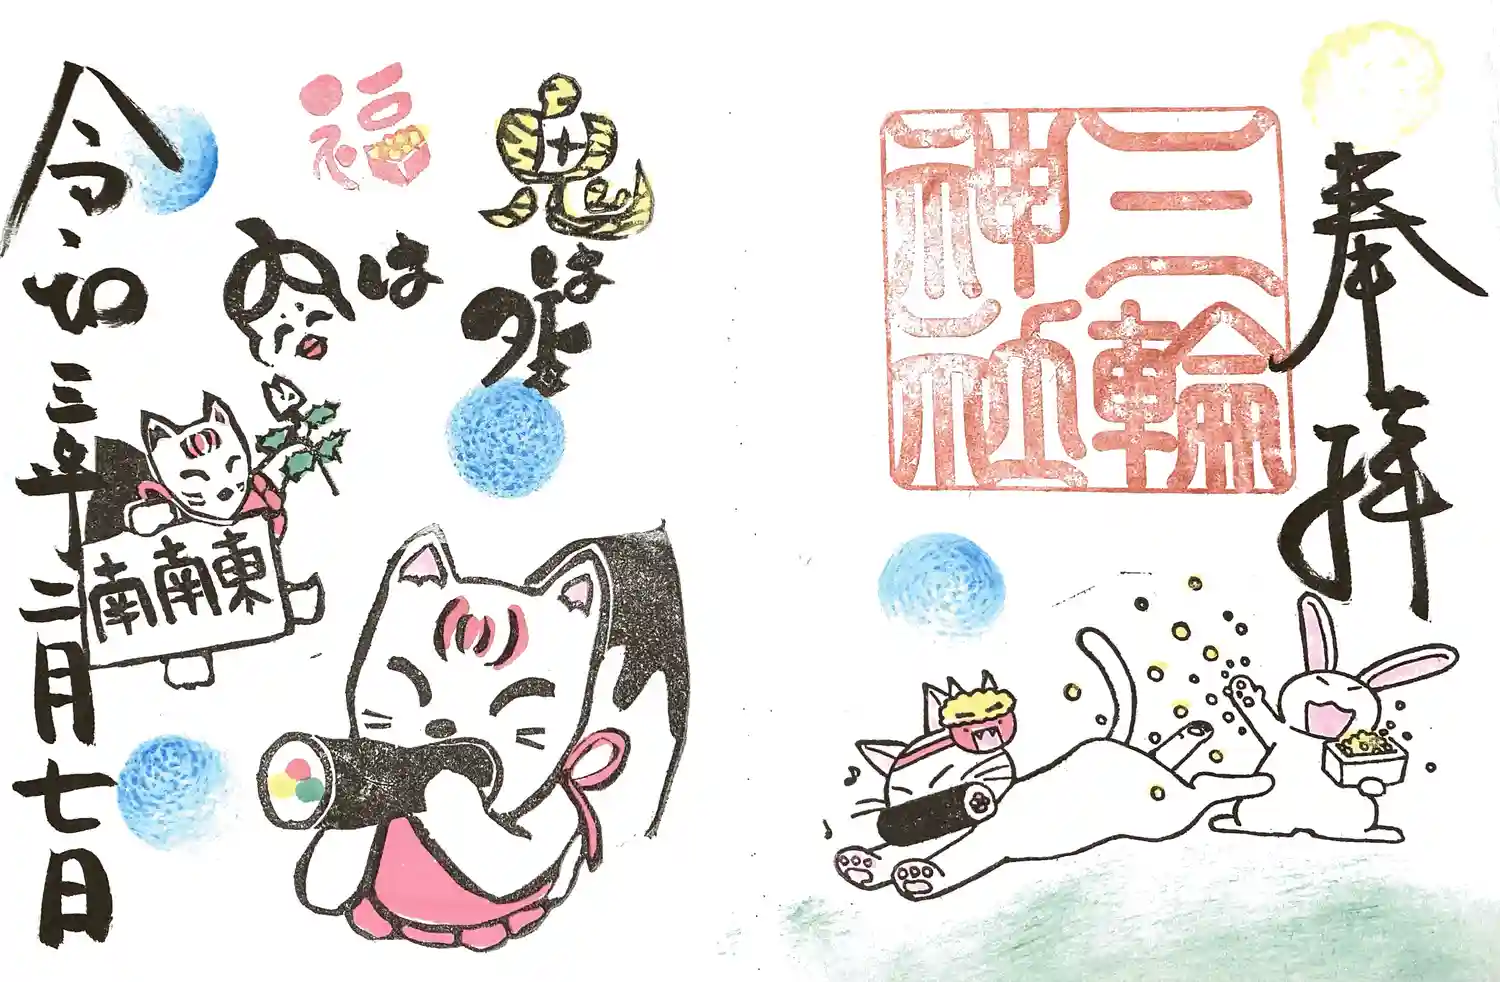 奉拝
三輪神社
鬼は外
福は内
南南東
令和三年二月七日